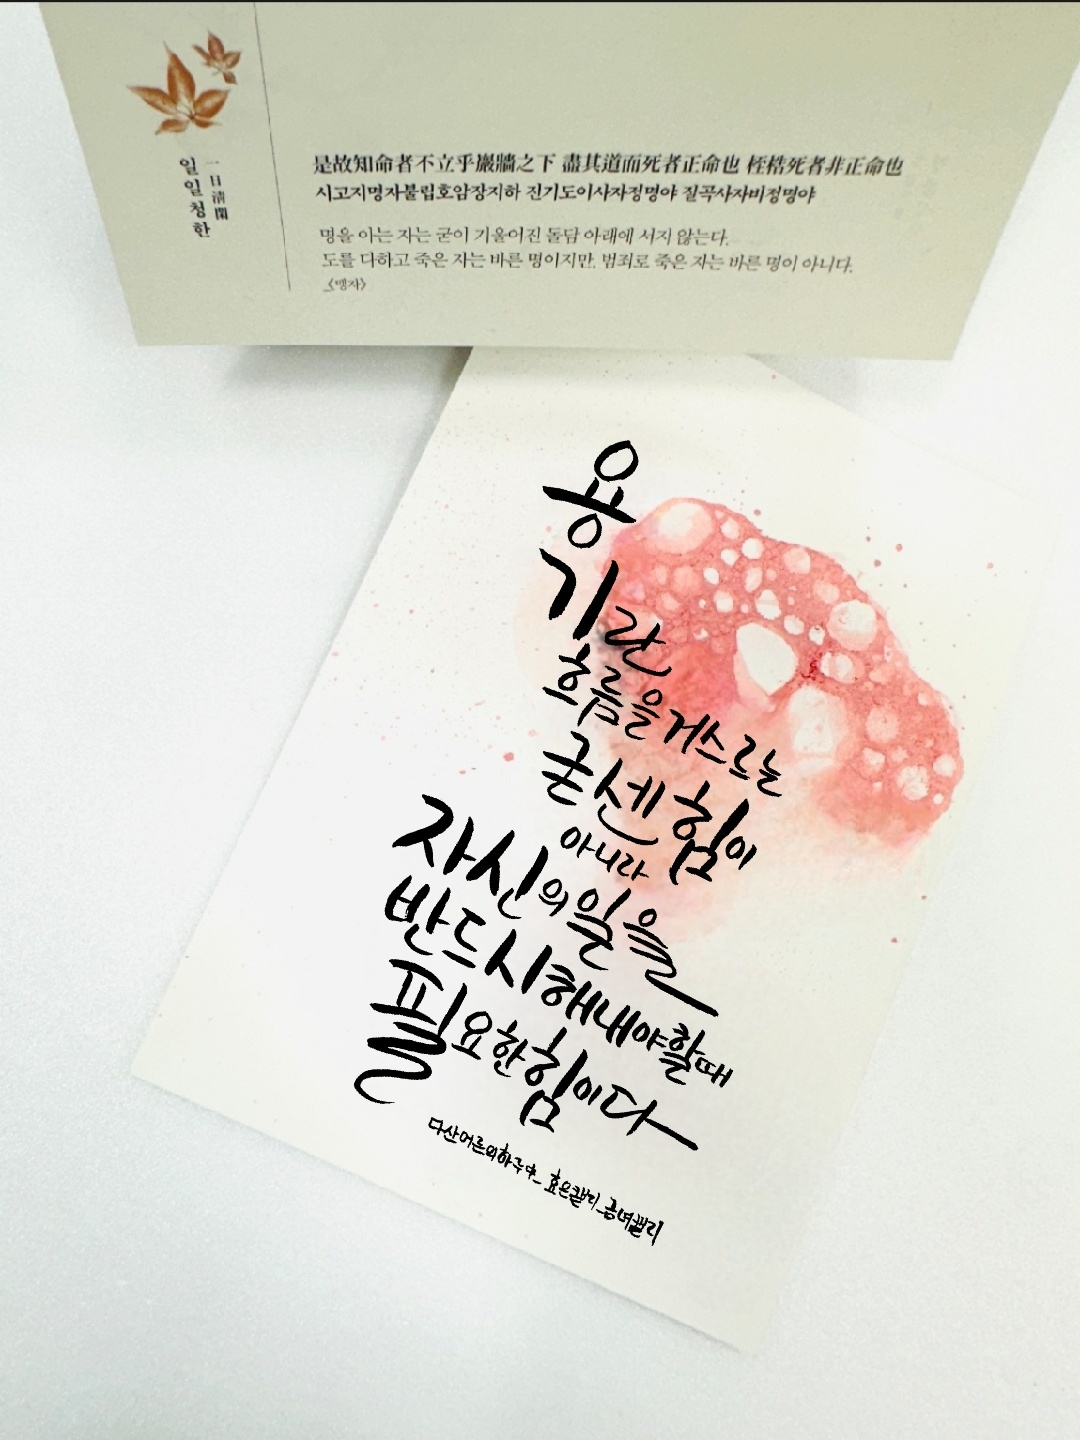 일일청한
一日淸閒
是故知命者不立乎巖牆之下 盡其道而死者正命也 桎梏死者非正命也
시고지명자불립호암장지하 진기도이사자정명야 질곡사자비정명야
명을 아는 자는 굳이 기울어진 돌담 아래에 서지 않는다.
도를 다하고 죽은 자는 바른 명이지만, 범죄로 죽은 자는 바른 명이 아니다.
_《맹자》
용
기란
흐름을 거스르는
굳센 힘이
아니라
자신의 일을
반드시 해내야 할 때
필요한 힘이다
다산어른의하루中_ 효은캘리_공녀캘리